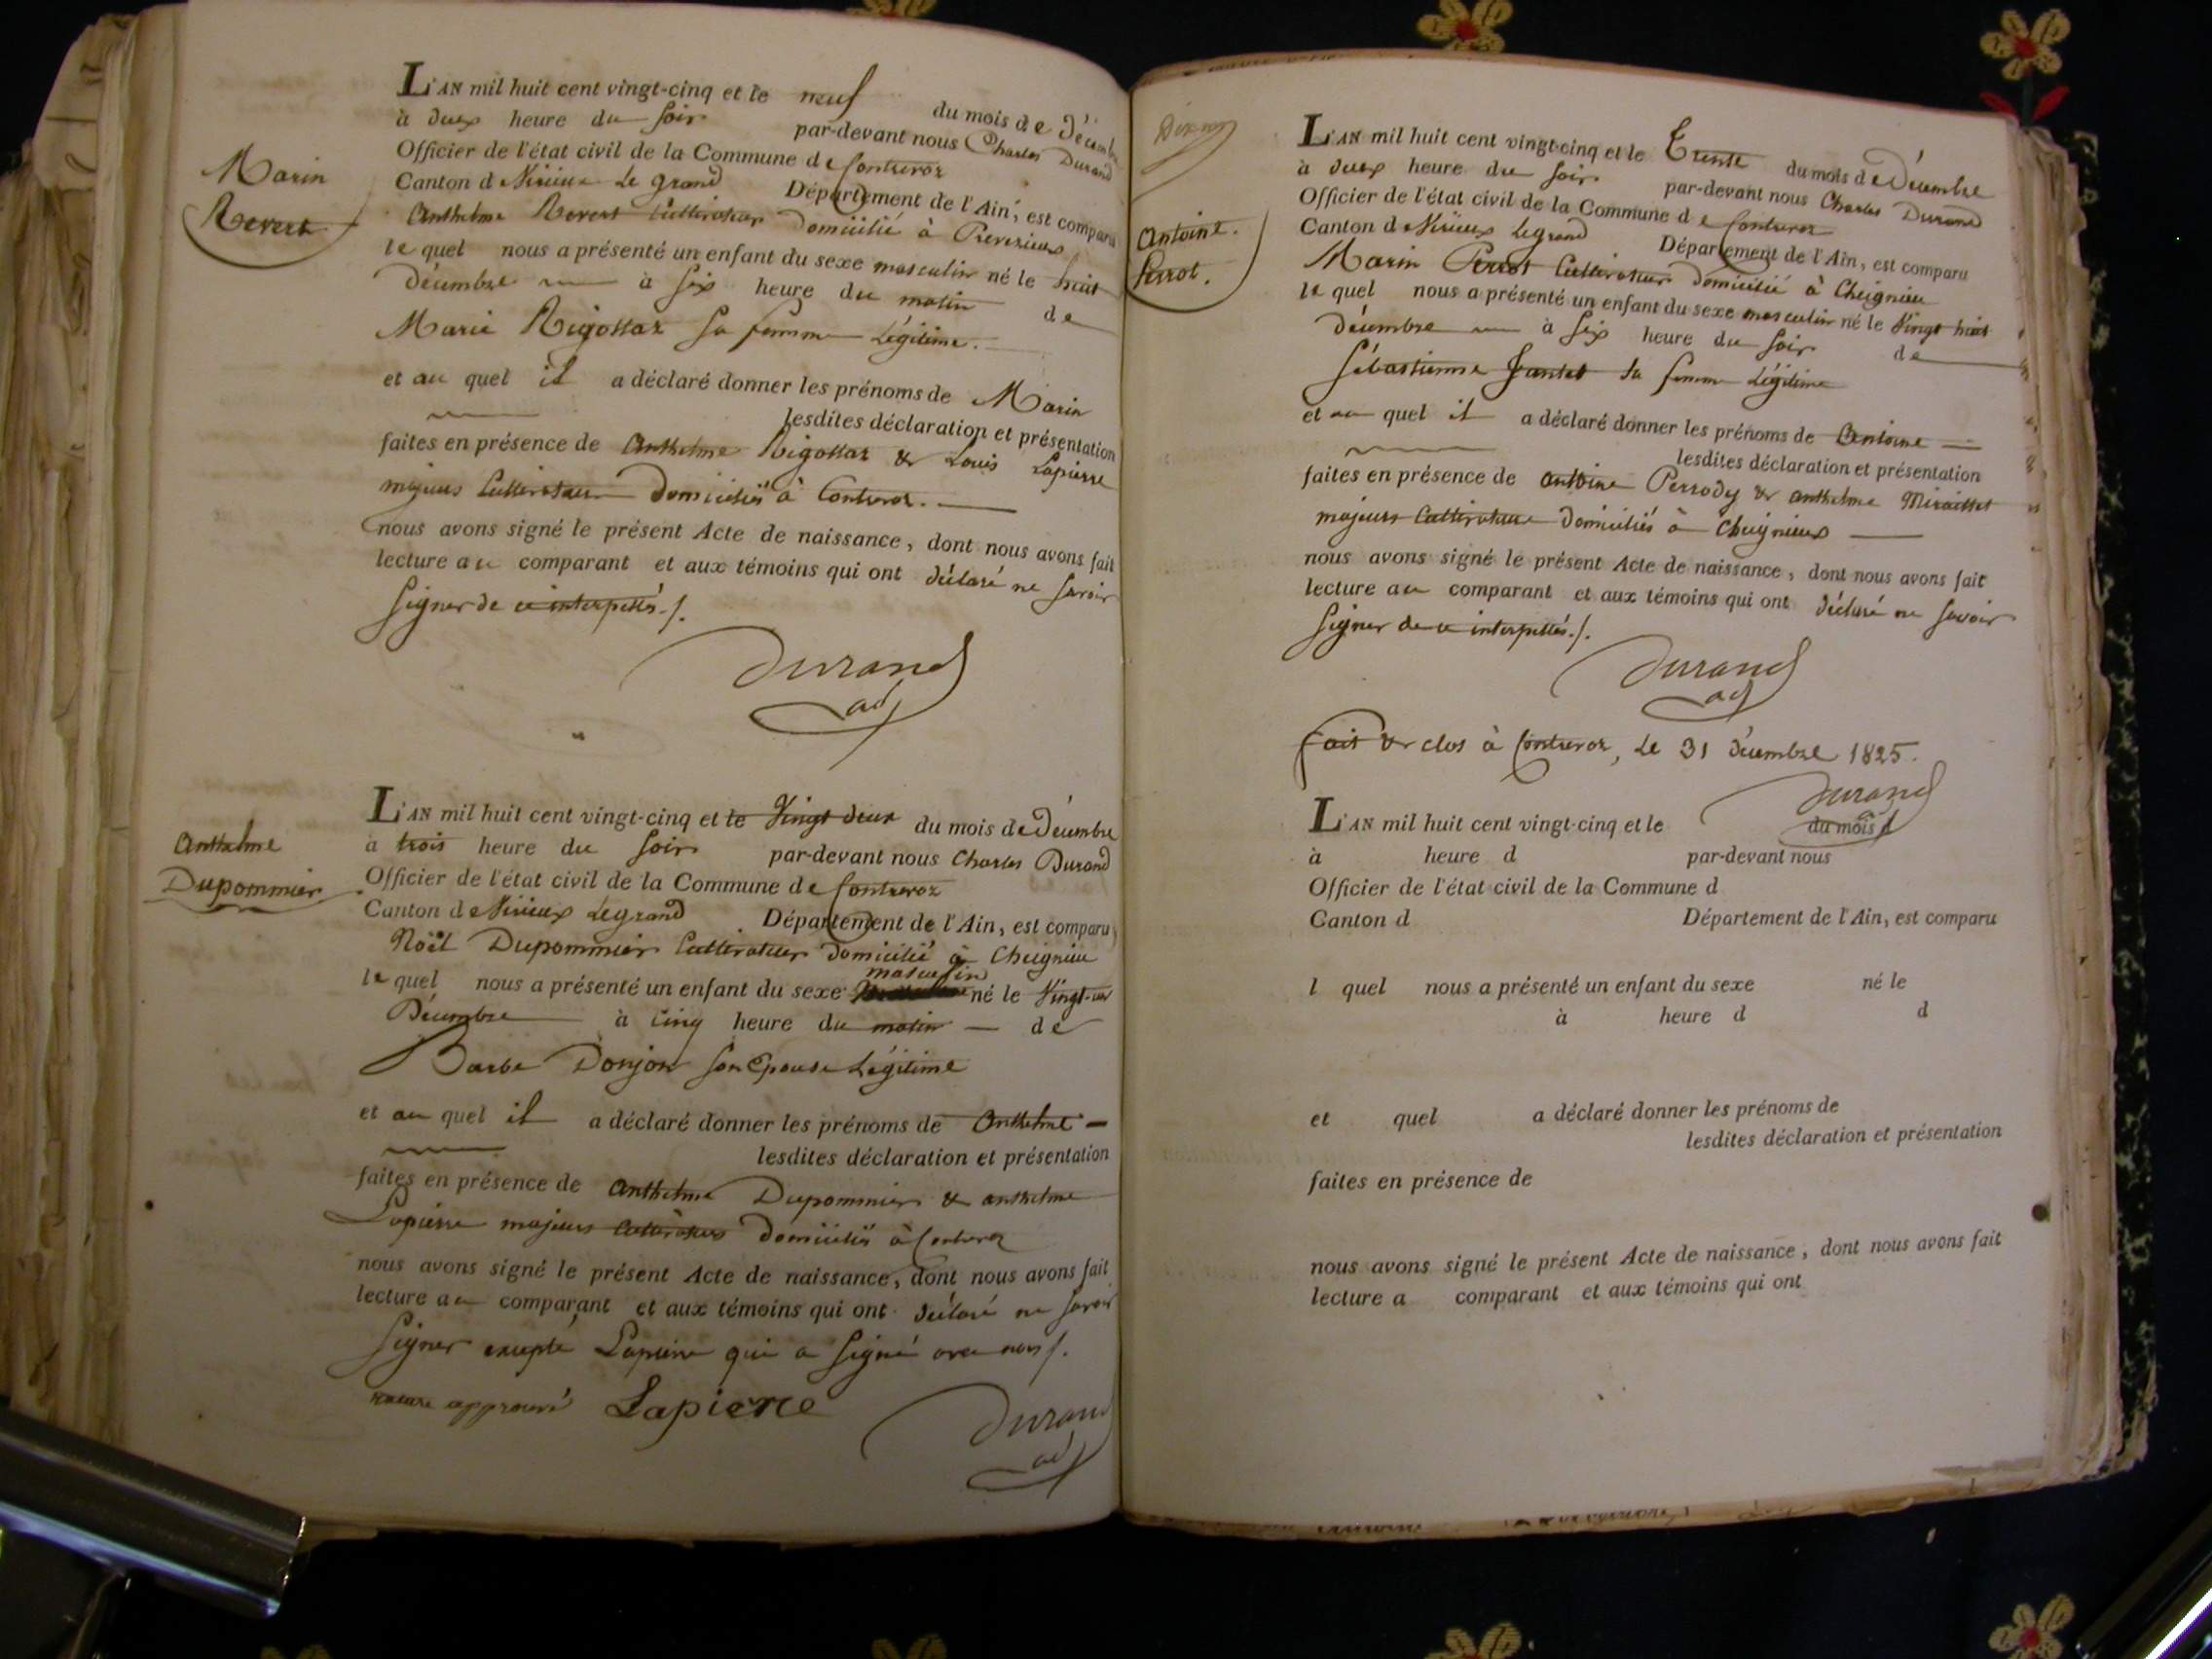 Marin
Revert
L'AN mil huit cent vingt-cinq et le neuf du mois de Décembre
à deux heure du soir par-devant nous Charles Durand
Officier de l'état civil de la Commune de Contrevoz
Canton de Virieux Le grand Département de l'Ain, est comparu
Anthelme Revert Cultivateur domicilié à Prevezieux
le quel nous a présenté un enfant du sexe masculin né le huit
décembre à six heure du matin de
Marie Rigottaz sa femme Légitime.
et au quel il a déclaré donner les prénoms de Marin
lesdites déclaration et présentation
faites en présence de Anthelme Rigottaz & Louis Lapierre
majeurs Cultivateurs Domiciliés à Contrevoz.
nous avons signé le présent Acte de naissance, dont nous avons fait
lecture au comparant et aux témoins qui ont déclaré ne savoir
signer de ce interpellés./.
Durand
adj
Anthelme
Dupommier
L'AN mil huit cent vingt-cinq et le Vingt deux du mois de Décembre
à trois heure du soir par-devant nous Charles Durand
Officier de l'état civil de la Commune de Contrevoz
Canton de Virieux Legrand Département de l'Ain, est comparu
Noël Dupommier Cultivateur domicilié à Cheignieu
masculin
le quel nous a présenté un enfant du sexe né le Vingt-un
Décembre à cinq heure du matin de
Barbe Donjon son Epouse Légitime
et au quel il a déclaré donner les prénoms de Anthelme
lesdites déclaration et présentation
faites en présence de Anthelme Dupommier & anthelme
Lapierre majeurs Cultivateurs domiciliés à Contrevoz
nous avons signé le présent Acte de naissance, dont nous avons fait
lecture au comparant et aux témoins qui ont déclaré ne savoir
signer excepté Lapierre qui a signé avec nous/.
rature approuvé Lapierre
Durand
adj
Antoine.
Perrot.
L'AN mil huit cent vingt-cinq et le Trente du mois de Décembre
à deux heure du soir par-devant nous Charles Durand
Officier de l'état civil de la Commune de Contrevoz
Canton de Virieux Legrand Département de l'Ain, est comparu
Marin Perrot Cultivateur domicilié à Cheignieu
le quel nous a présenté un enfant du sexe masculin né le Vingt huit
décembre à six heure du soir de
Sébastienne Jantet sa femme Légitime
et au quel il a déclaré donner les prénoms de Antoine
lesdites déclaration et présentation
faites en présence de antoine Perrody & anthelme Miraillet
majeurs Cultivateurs domiciliés à Cheignieux
nous avons signé le présent Acte de naissance, dont nous avons fait
lecture au comparant et aux témoins qui ont déclaré ne savoir
signer de ce interpellés./.
Durand
adj
Fait & clos à Contrevoz, Le 31 décembre 1825.
Durand
L'AN mil huit cent vingt-cinq et le du mois d
à heure d par-devant nous
Officier de l'état civil de la Commune d
Canton d Département de l'Ain, est comparu
l quel nous a présenté un enfant du sexe né le
à heure d d
et quel a déclaré donner les prénoms de
lesdites déclaration et présentation
faites en présence de
nous avons signé le présent Acte de naissance, dont nous avons fait
lecture a comparant et aux témoins qui ont